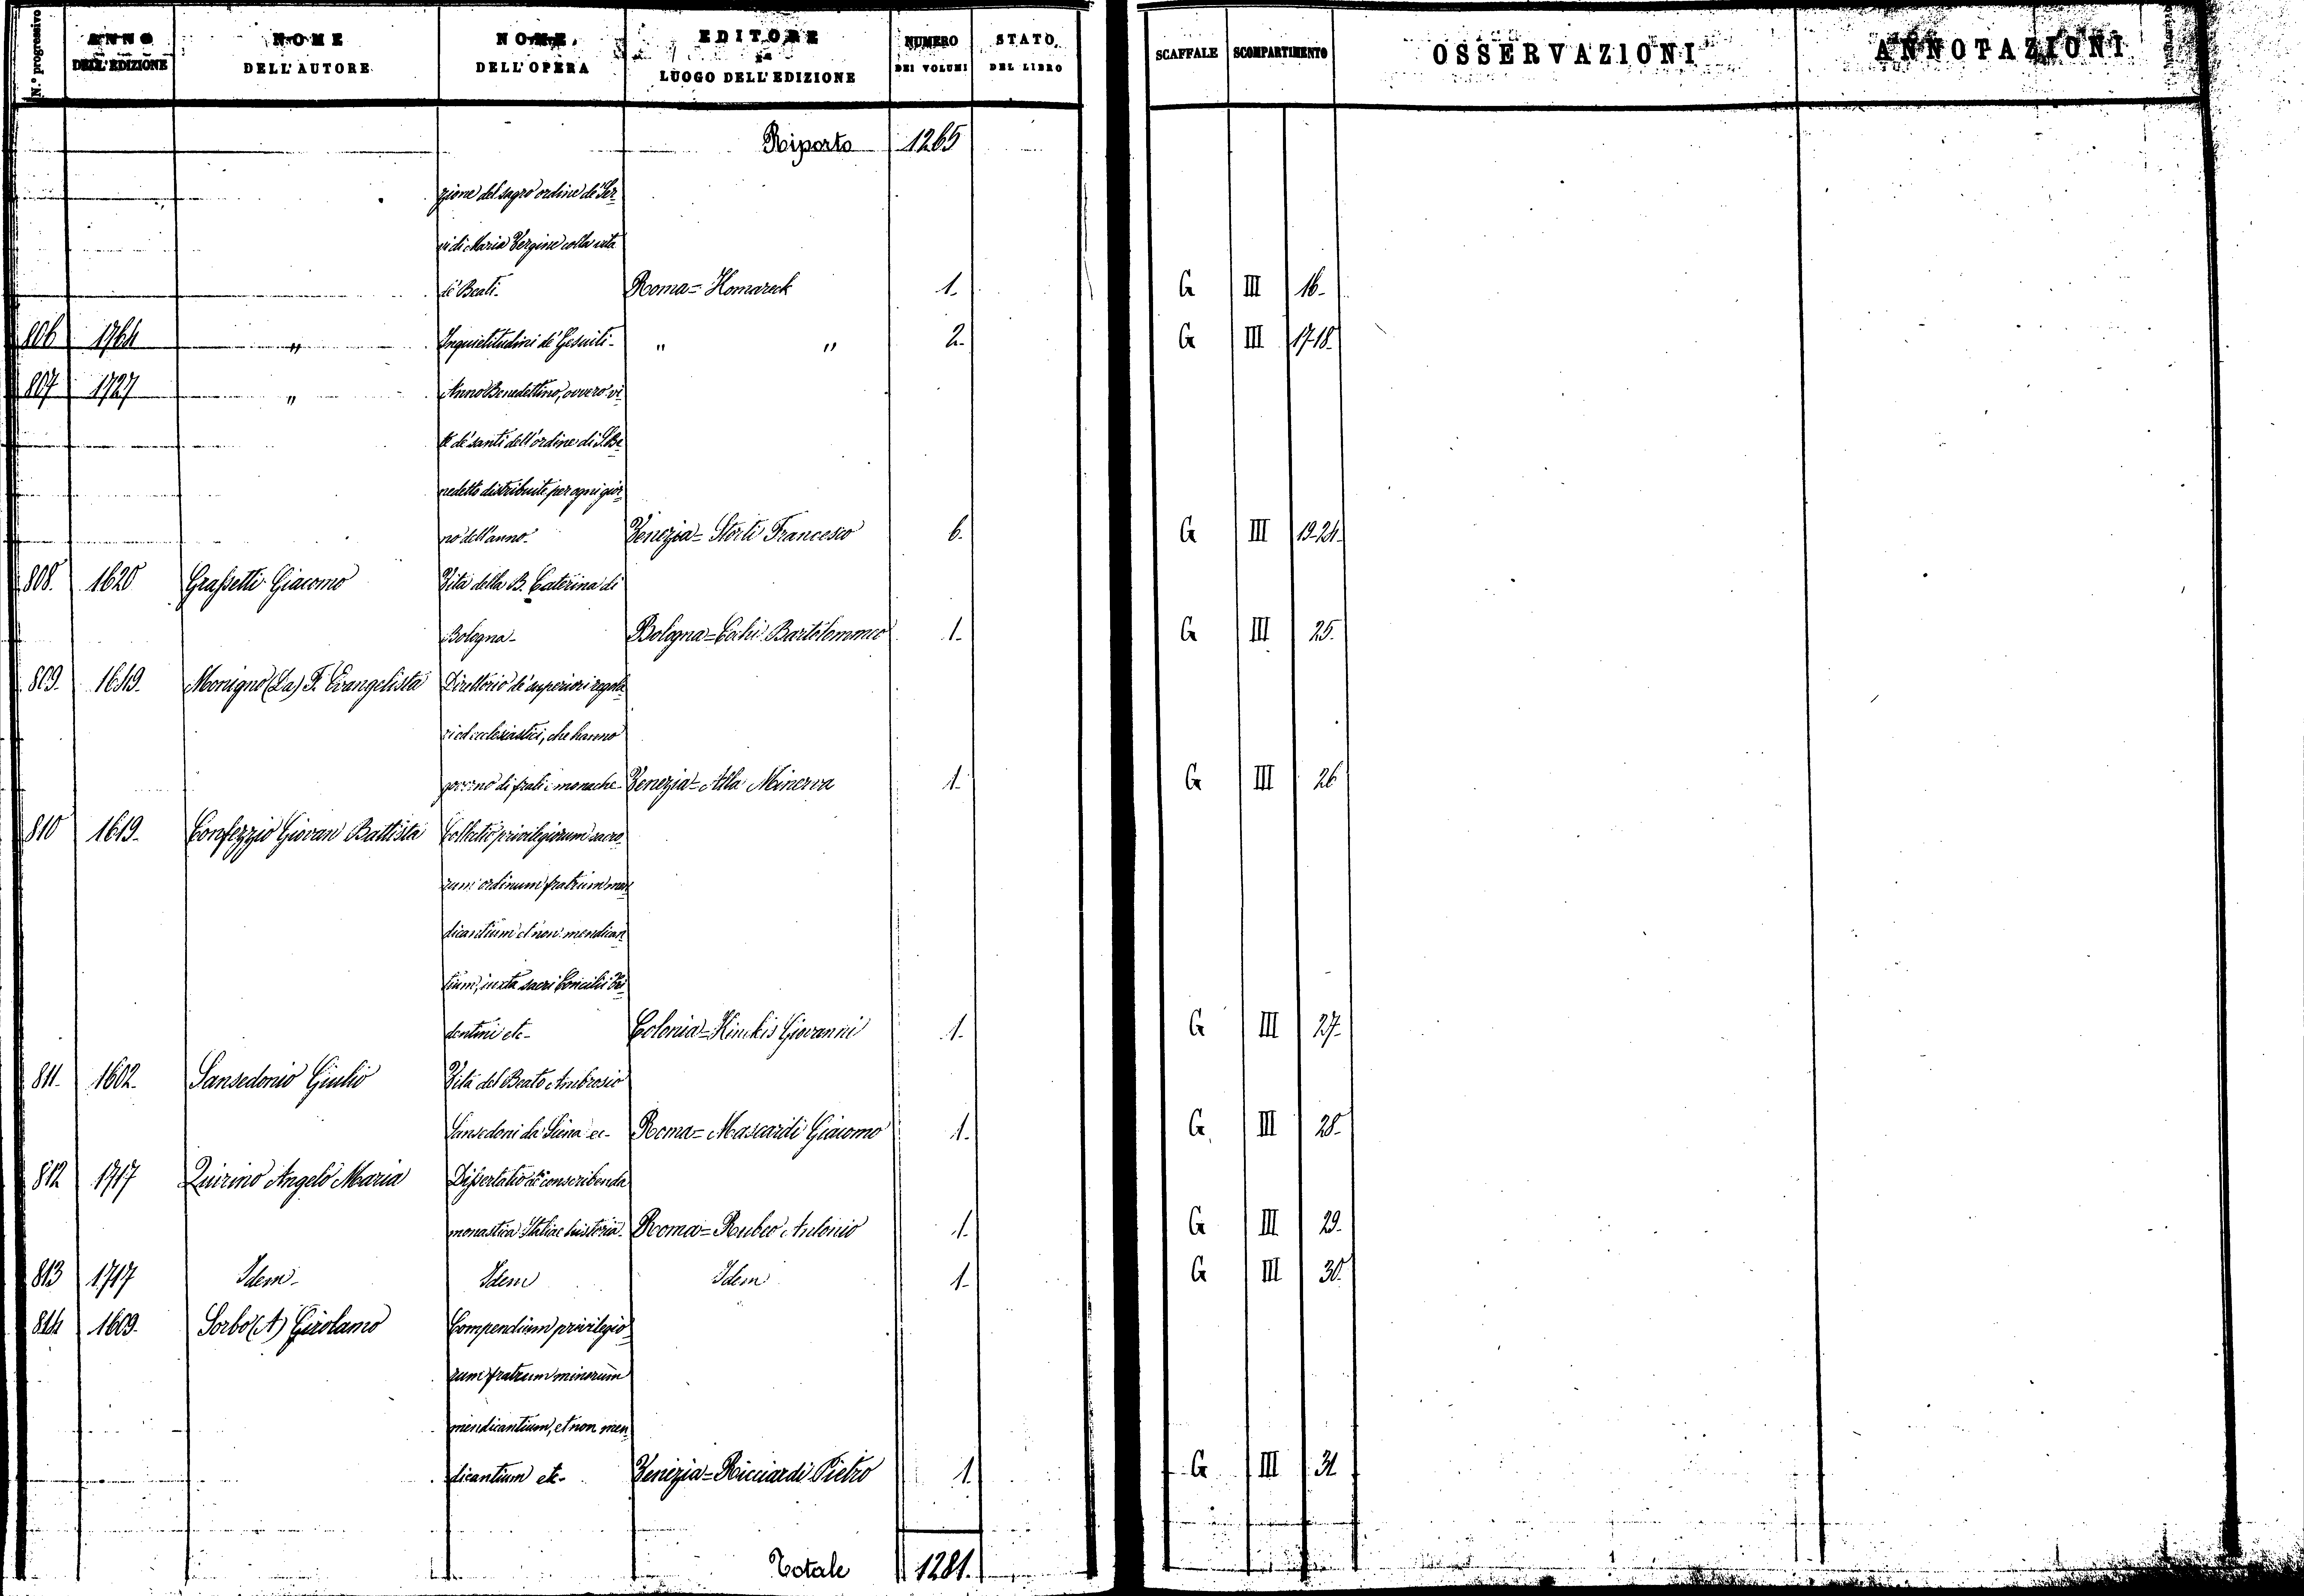 N.° progressivo | ANNO DELL'EDIZIONE | NOME DELL'AUTORE | NOME DELL'OPERA | EDITORE LUOGO DELL'EDIZIONE | NUMERO DEI VOLUMI | STATO DEL LIBRO | SCAFFALE | SCOMPARTIMENTO | OSSERVAZIONI | ANNOTAZIONI
Riporto 1265
zione del sagro ordine de' Ser-
vi di Maria Vergine colla vita
de' Beati- Roma= Komareck 1. G III 16-
806 1764 " Inquietitudini de' Gesuiti- " " 2. G III 17-18.
807 1727 " Anno Benedettino, ovvero vi-
te de' santi dell'ordine di S. Be-
nedetto distribuite per ogni gior-
no dell'anno- Venezia= Storti Francesco 6. G III 19-24.
808. 1620 Grassetti Giacomo Vita della B. Caterina di
Bologna- Bologna= Cochi Bartolommeo 1. G III 25.
809. 1649. Morigno (La) F. Evangelista Direttorio de' superiori regola-
ri ed ecclesiastici, che hanno
governo di frati e monache- Venezia= Alla Minerva 1. G III 26
810 1619. Confezzio Giovan Battista Collectio privilegiorum sacro-
rum ordinum fratrum men-
dicantium et non mendican-
tium, iuxta sacri Concilii Tri-
dentini etc- Colonia= Kinckis Giovanni 1. G III 27-
811. 1602. Sansedonio Giulio Vita del Beato Ambrosio
Sansedoni da Siena ec- Roma= Mascardi Giacomo 1. G III 28-
812 1717 Quirino Angelo Maria Dissertatio de conscribenda
monastica Italiae historia- Roma= Rubeo Antonio 1. G III 29.
813 1717 Idem- Idem Idem 1. G III 30.
814 1609. Sorbo (A) Girolamo Compendium privilegio-
rum fratrum minorum
mendicantium, et non men-
dicantium etc- Venezia= Ricciardi Pietro 1. G III 31
Totale 1281.